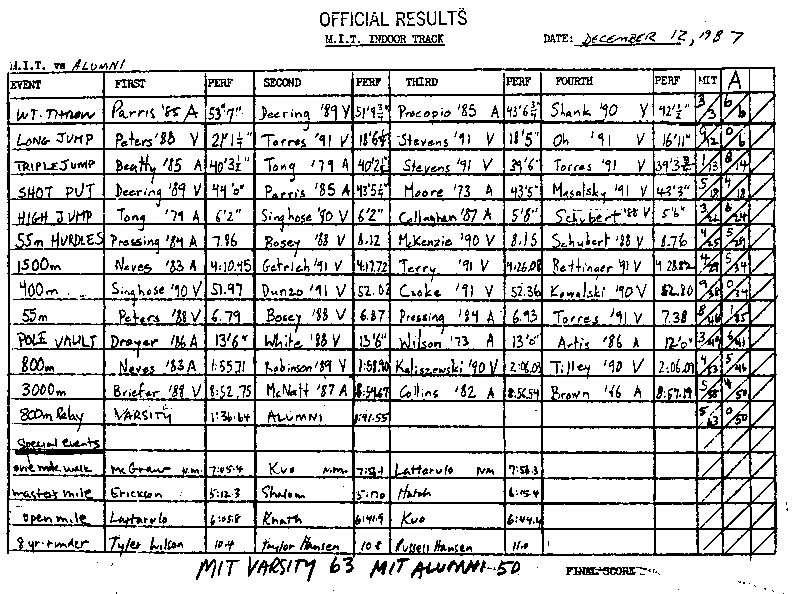 OFFICIAL RESULTS
M.I.T. INDOOR TRACK DATE: DECEMBER 12, 1987
M.I.T. vs ALUMNI
EVENT FIRST PERF SECOND PERF THIRD PERF FOURTH PERF MIT A
WT. THROW Parris '85 A 53'7" Deering '89 V 51'9¾" Procopio '85 A 43'6¾" Shank '90 V 42'½" 3/3 6/6
LONG JUMP Peters '88 V 21'1½" Torres '91 V Stevens '91 V 18'5" Oh '91 V 16'11" 9/12 0/6
TRIPLE JUMP Beatty '85 A 40'3½" Tong '79 A Stevens '91 V 39'6" Torres '91 V 1/13 8/14
SHOT PUT Deering '89 V 44'0" Parris '85 A Moore '73 A 43'5" Masalsky '91 V 43'3"
HIGH JUMP Tong '79 A 6'2" Singhose '90 V 6'2" Callaghan '87 A 5'8" Schubert '88 V 5'6"
55m HURDLES Pressing '84 A 7.86 Bosey '88 V 8.12 McKenzie '90 V 8.15 Schubert '88 V 8.76
1500m Neves '83 A 4:10.45 Getrich '91 V 4:17.72 Terry '91 V 4:26.08 Rettinger '91 V 4:28.82
400m Singhose '90 V 51.97 Dunzo '91 V 52.02 Cooke '91 V 52.36 Kowalski '90 V 52.80
55m Peters '88 V 6.79 Bosey '88 V 6.87 Pressing '84 A 6.93 Torres '91 V 7.38
POLE VAULT Dreyer '86 A 13'6" White '88 V 13'6" Wilson '73 A 13'0" Artis '86 A 12'0"
800m Neves '83 A 1:55.71 Robinson '89 V 1:58.90 Kaliszewski '90 V 2:06.03 Tilley '90 V
3000m Briefer '88 V 8:52.75 McNatt '87 A 8:54.67 Collins '82 A 8:56.54 Brown '86 A 8:57.19
800m Relay VARSITY 1:36.64 ALUMNI 1:41.55 5/63 0/50
Special Events
one mile walk McGraw N.M. 7:05.4 Kuo N.M. Lattarulo NM 7:58.3
master mile Erickson 5:12.3 Shalom 5:17.0 Hatch 6:15.4
open mile Lattarulo 6:05.8 Knath 6:41.9 Kuo 6:44.4
8 yr + under Tyler Wilson 10.4 Taylor Hansen 10.8 Russell Hansen 11.0
MIT VARSITY 63 MIT ALUMNI 50 FINAL SCORE